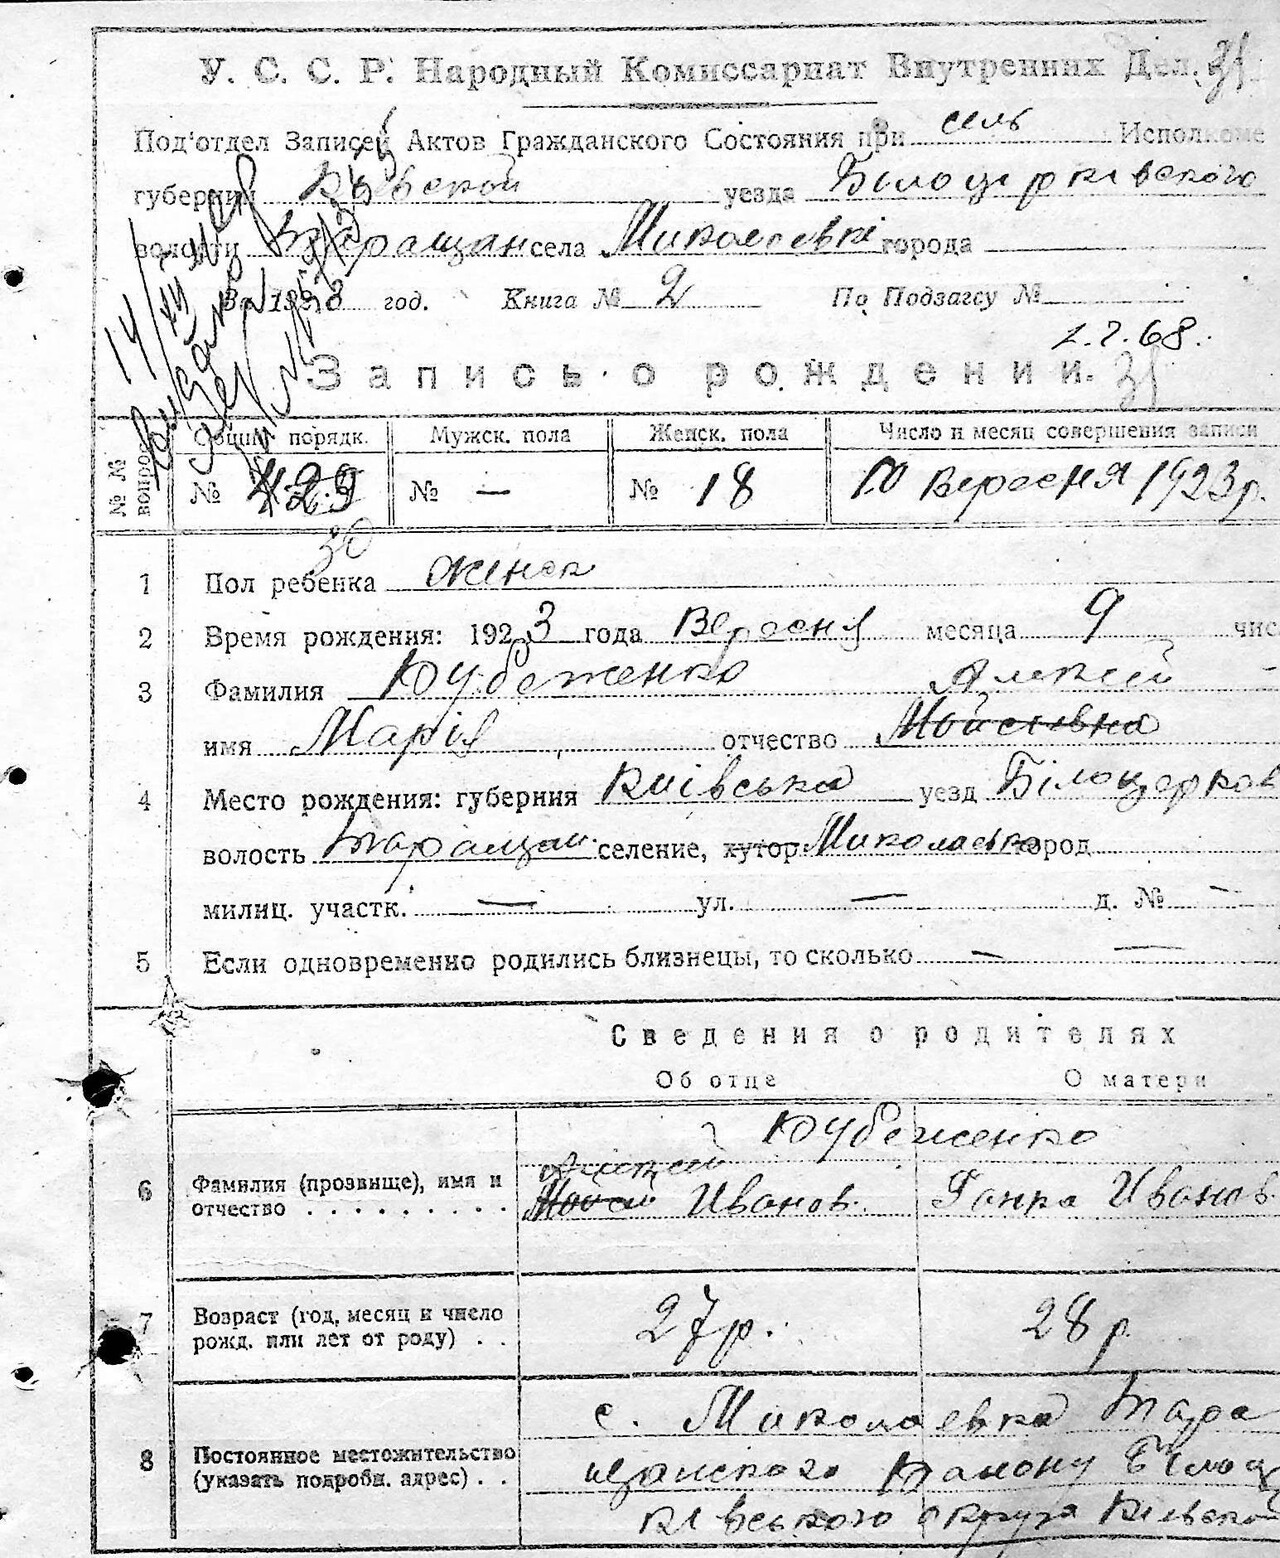 У. С. С. Р. Народный Комиссариат Внутренних Дел. 31
Под'отдел Записей Актов Гражданского Состояния при сель Исполкоме
губернии Київской уезда Білоцерківського
волости Таращан села Миколаевкі города
За 1923 год. Книга № 2 По Подзагсу №
2.7.68.
Запись о рождении. 31
№ № вопрос. Общий порядк. Мужск. пола Женск. пола Число и месяц совершения записи
№ 429 № — № 18 10 Вересня 1923 р.
30
1 Пол ребенка женск
2 Время рождения: 1923 года Вересня месяца 9 чис
3 Фамилия Кубеженко Алексій
имя Марія отчество Мойсеївна
4 Место рождения: губерния Київська уезд Білоцерков
волость Таращан. селение, хутор Миколаевка город
милиц. участк. — ул. — д. № —
5 Если одновременно родились близнецы, то сколько — —
Сведения о родителях
Об отце О матери
Кубеженко
Алексей
6 Фамилия (прозвище), имя и отчество . . . . . . . . . Мойсей Иванов. Ганка Иванов.
7 Возраст (год, месяц и число рожд. или лет от роду) . . 27 р. 28 р.
с. Миколаевка Тара
8 Постоянное местожительство (указать подробн. адрес) . . щанского Району Білоц
ківського округа Київской